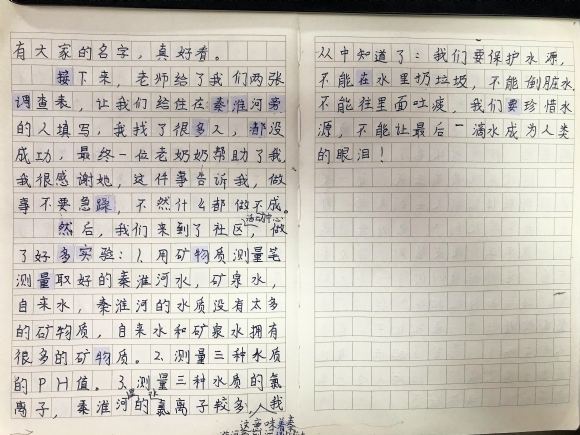 有大家的名字，真好看。
接下来，老师给了我们两张
调查表，让我们给住在秦淮河旁
的人填写，我找了很多人，都没
成功，最终一位老奶奶帮助了我，
我很感谢她，这件事告诉我，做
事不要急躁，不然什么都做不成。
然后，我们来到了社区活动中心，做
了好多实验：1.用矿物质测量笔
测量取好的秦淮河水，矿泉水，
自来水，秦淮河的水质没有太多
的矿物质，自来水和矿泉水拥有
很多的矿物质。2.测量三种水质
的PH值。3.测量三种水质的氯
离子，秦淮河的氯离子较多，我
这意味着秦
从中知道了：我们要保护水源，
不能在水里扔垃圾，不能倒脏水，
不能往里面吐痰，我们要珍惜水
源，不能让最后一滴水成为人类
的眼泪！